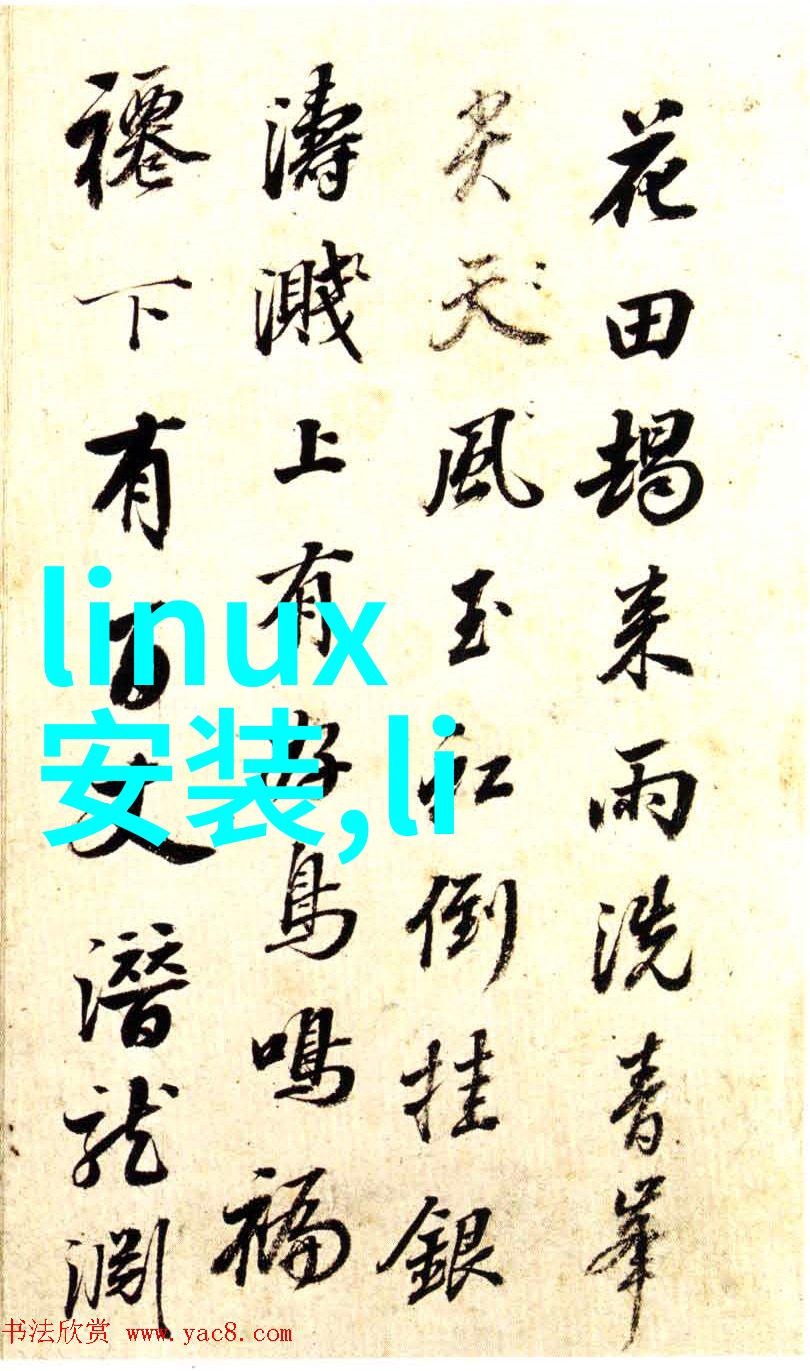 花田朅来雨洗青峯
尖天風玉虹倒挂銀
濤濺上有好鳥鳴福
下有百丈潛龍淵
linux
安装,li
书法欣赏 www.yac8.com